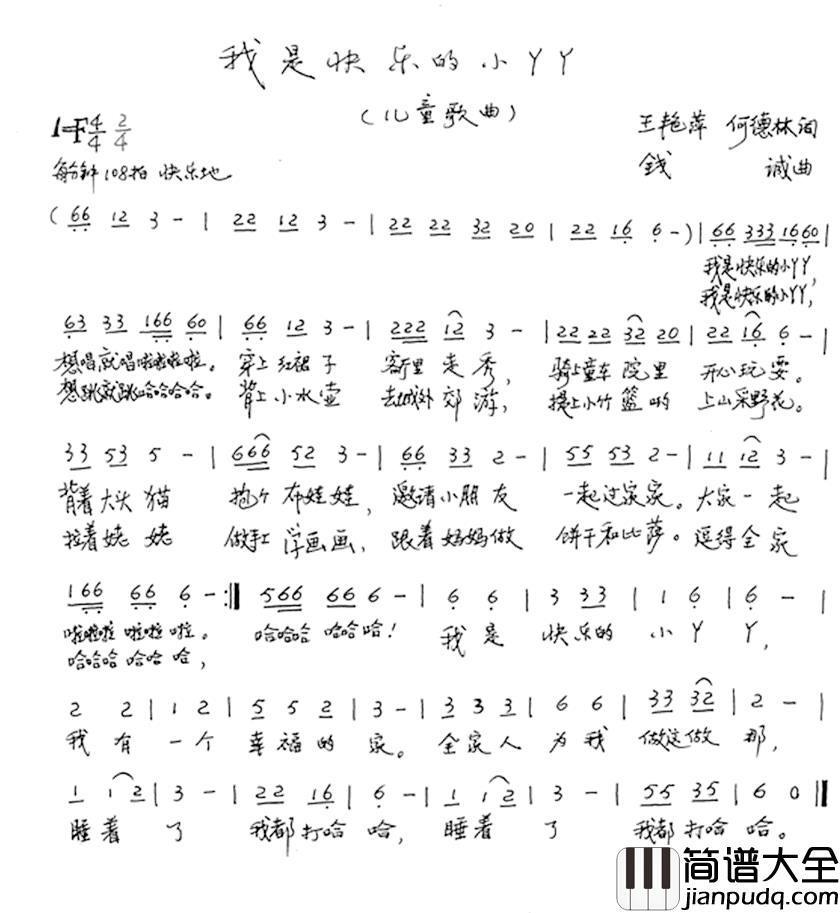 我是快乐的小丫丫
(儿童歌曲)
1=F 4/4 2/4
王艳萍 何德林词
每分钟108拍 快乐地
钱 诚曲
(66 12 3 - | 22 12 3 - | 22 22 32 20 | 22 16 6 -) | 66 333 16 60 |
我是快乐的小丫丫,
我是快乐的小丫丫,
63 33 166 60 | 66 12 3 - | 222 12 3 - | 22 22 32 20 | 22 16 6 - |
想唱就唱啦啦啦啦。 穿上红裙子 客厅里走秀, 骑上童车院里 开心玩耍。
想跳就跳哈哈哈哈。 背上小水壶 去城外郊游, 提上小竹篮哟 上山采野花。
33 53 5 - | 666 52 3 - | 66 33 2 - | 55 53 2 - | 11 12 3 - |
背着大头猫 抱个布娃娃, 邀请小朋友 一起过家家。大家一起
拉着姥姥 做手工学画画, 跟着妈妈做 饼干和比萨。逗得全家
166 66 6 - :|| 566 66 6 - | 6 6 | 3 33 | 1 6 | 6 - |
啦啦啦啦啦啦。 哈哈哈哈哈哈! 我是快乐的小丫丫,
哈哈哈哈哈哈,
2 2 | 1 2 | 5 5 2 | 3 - | 3 3 3 | 6 6 | 33 32 | 2 - |
我有一个幸福的家。全家人为我做这做那,
1 1 2 | 3 - | 22 16 | 6 - | 1 1 2 | 3 - | 55 35 | 6 0 ||
睡着了 我都打哈哈, 睡着了 我都打哈哈。
简谱大全
jianpudq.com